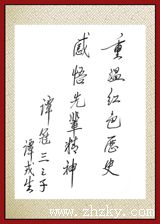 重温红色历史
感悟先辈精神
谭冠三三子
谭戎生
www.zhzky.com